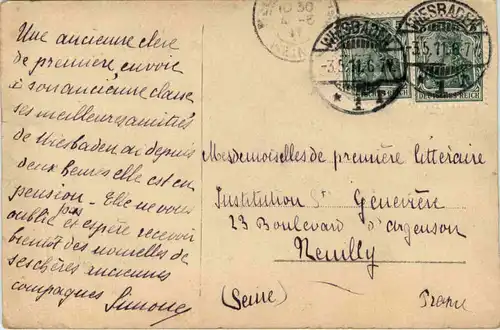 Une ancienne élève
de première envoie
à son ancienne classe
ses meilleures amitiés
de Wiesbaden où depuis
deux heures elle est en
pension. Elle ne vous
oublie pas et espère recevoir
bientôt des nouvelles de
ses chères anciennes
compagnes Simone
WIESBADEN
-3.5.11.6-7N.
* 1 r
WIESBADEN
-3.5.11.6-7N.
1 r
DEUTSCHES REICH
Mesdemoiselles de première littéraire
Institution Ste Geneviève
23 Boulevard d'Argenson
Neuilly
(Seine) France